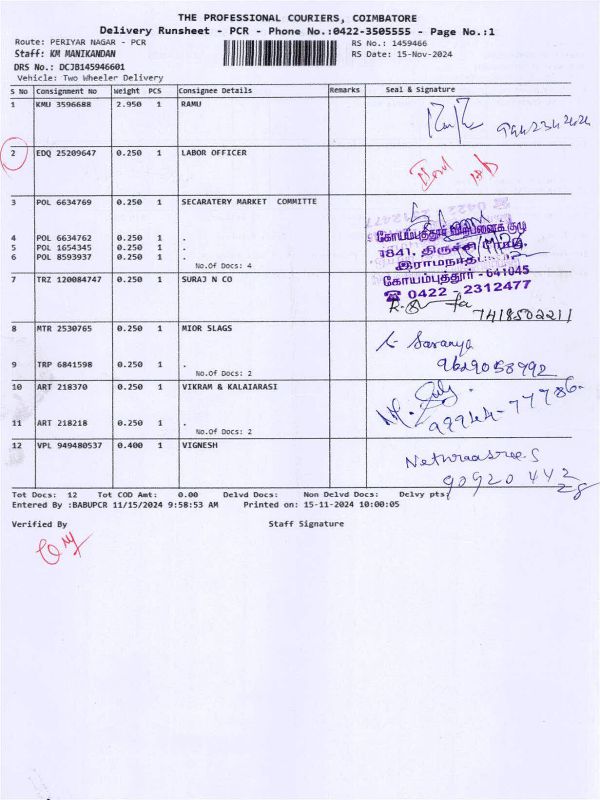 THE PROFESSIONAL COURIERS, COIMBATORE
Delivery Runsheet - PCR - Phone No.:0422-3505555 - Page No.:1
Route: PERIYAR NAGAR - PCR RS No.: 1459466
Staff: KM MANIKANDAN RS Date: 15-Nov-2024
DRS No.: DCJB145946601
Vehicle: Two Wheeler Delivery
S No Consignment No Weight PCS Consignee Details Remarks Seal & Signature
1 KMU 3596688 2.950 1 RAMU
2 EDQ 25209647 0.250 1 LABOR OFFICER
3 POL 6634769 0.250 1 SECARATERY MARKET COMMITTE
4 POL 6634762 0.250 1 .
5 POL 1654345 0.250 1 .
6 POL 8593937 0.250 1 .
No.Of Docs: 4
கோயம்புத்தூர் விற்பனைக் குழு
1841, திருச்சி ரோடு,
இராமநாதபுரம்
கோயம்புத்தூர் - 641045
☎ 0422 - 2312477
7 TRZ 120084747 0.250 1 SURAJ N CO
7418502211
8 MTR 2530765 0.250 1 MIOR SLAGS
Saranya
9629058992
9 TRP 6841598 0.250 1 .
No.Of Docs: 2
10 ART 218370 0.250 1 VIKRAM & KALAIARASI
99944-77786
11 ART 218218 0.250 1 .
No.Of Docs: 2
12 VPL 949480537 0.400 1 VIGNESH
Nethraasree.S
90920 442
28
Tot Docs: 12 Tot COD Amt: 0.00 Delvd Docs: Non Delvd Docs: Delvy pts:
Entered By :BABUPCR 11/15/2024 9:58:53 AM Printed on: 15-11-2024 10:00:05
Verified By Staff Signature